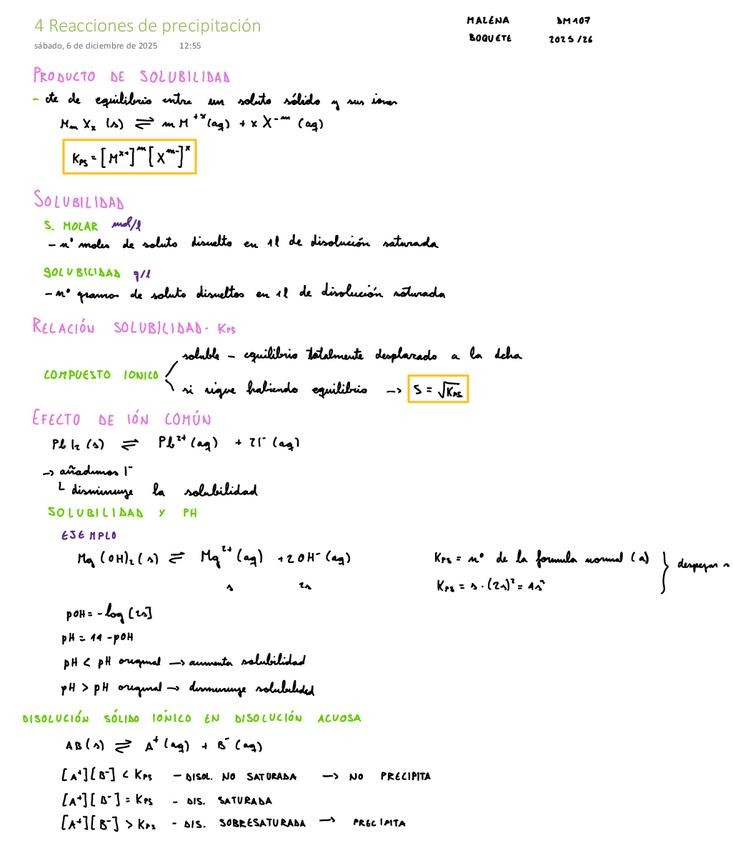 4 Reacciones de precipitación
sábado, 6 de diciembre de 2025 12:55
MALENA DM107
BOQUETE 2025/26
PRODUCTO DE SOLUBILIDAD
- cte de equilibrio entre un soluto sólido y sus iones
MmXx (s) ⇌ m M⁺ˣ(aq) + x X⁻ᵐ (aq)
KPS = [Mˣ⁺]ᵐ [Xᵐ⁻]ˣ
SOLUBILIDAD
S. MOLAR mol/l
- nº moles de soluto disuelto en 1l de disolución saturada
SOLUBILIDAD g/l
- nº gramos de soluto disueltos en 1l de disolución saturada
RELACIÓN SOLUBILIDAD- KPS
COMPUESTO IONICO
soluble - equilibrio totalmente desplazado a la dcha
si sigue habiendo equilibrio -> S = √KPS
EFECTO DE IÓN COMÚN
PbI₂ (s) ⇌ Pb²⁺ (aq) + 2I⁻ (aq)
-> añadimos I⁻
└ disminuye la solubilidad
SOLUBILIDAD Y PH
EJEMPLO
Mg(OH)₂(s) ⇌ Mg²⁺(aq) + 2OH⁻(aq)
s 2s
KPS = nº de la formula normal (a)
KPS = s · (2s)² = 4s³
} despejar s
pOH = -log [2s]
pH = 14 - pOH
pH < pH original -> aumenta solubilidad
pH > pH original -> disminuye solubilidad
DISOLUCIÓN SÓLIDO IÓNICO EN DISOLUCIÓN ACUOSA
AB(s) ⇌ A⁺(aq) + B⁻(aq)
[A⁺][B⁻] < KPS - DISOL. NO SATURADA -> NO PRECIPITA
[A⁺][B⁻] = KPS - DIS. SATURADA
[A⁺][B⁻] > KPS - DIS. SOBRESATURADA -> PRECIPITA